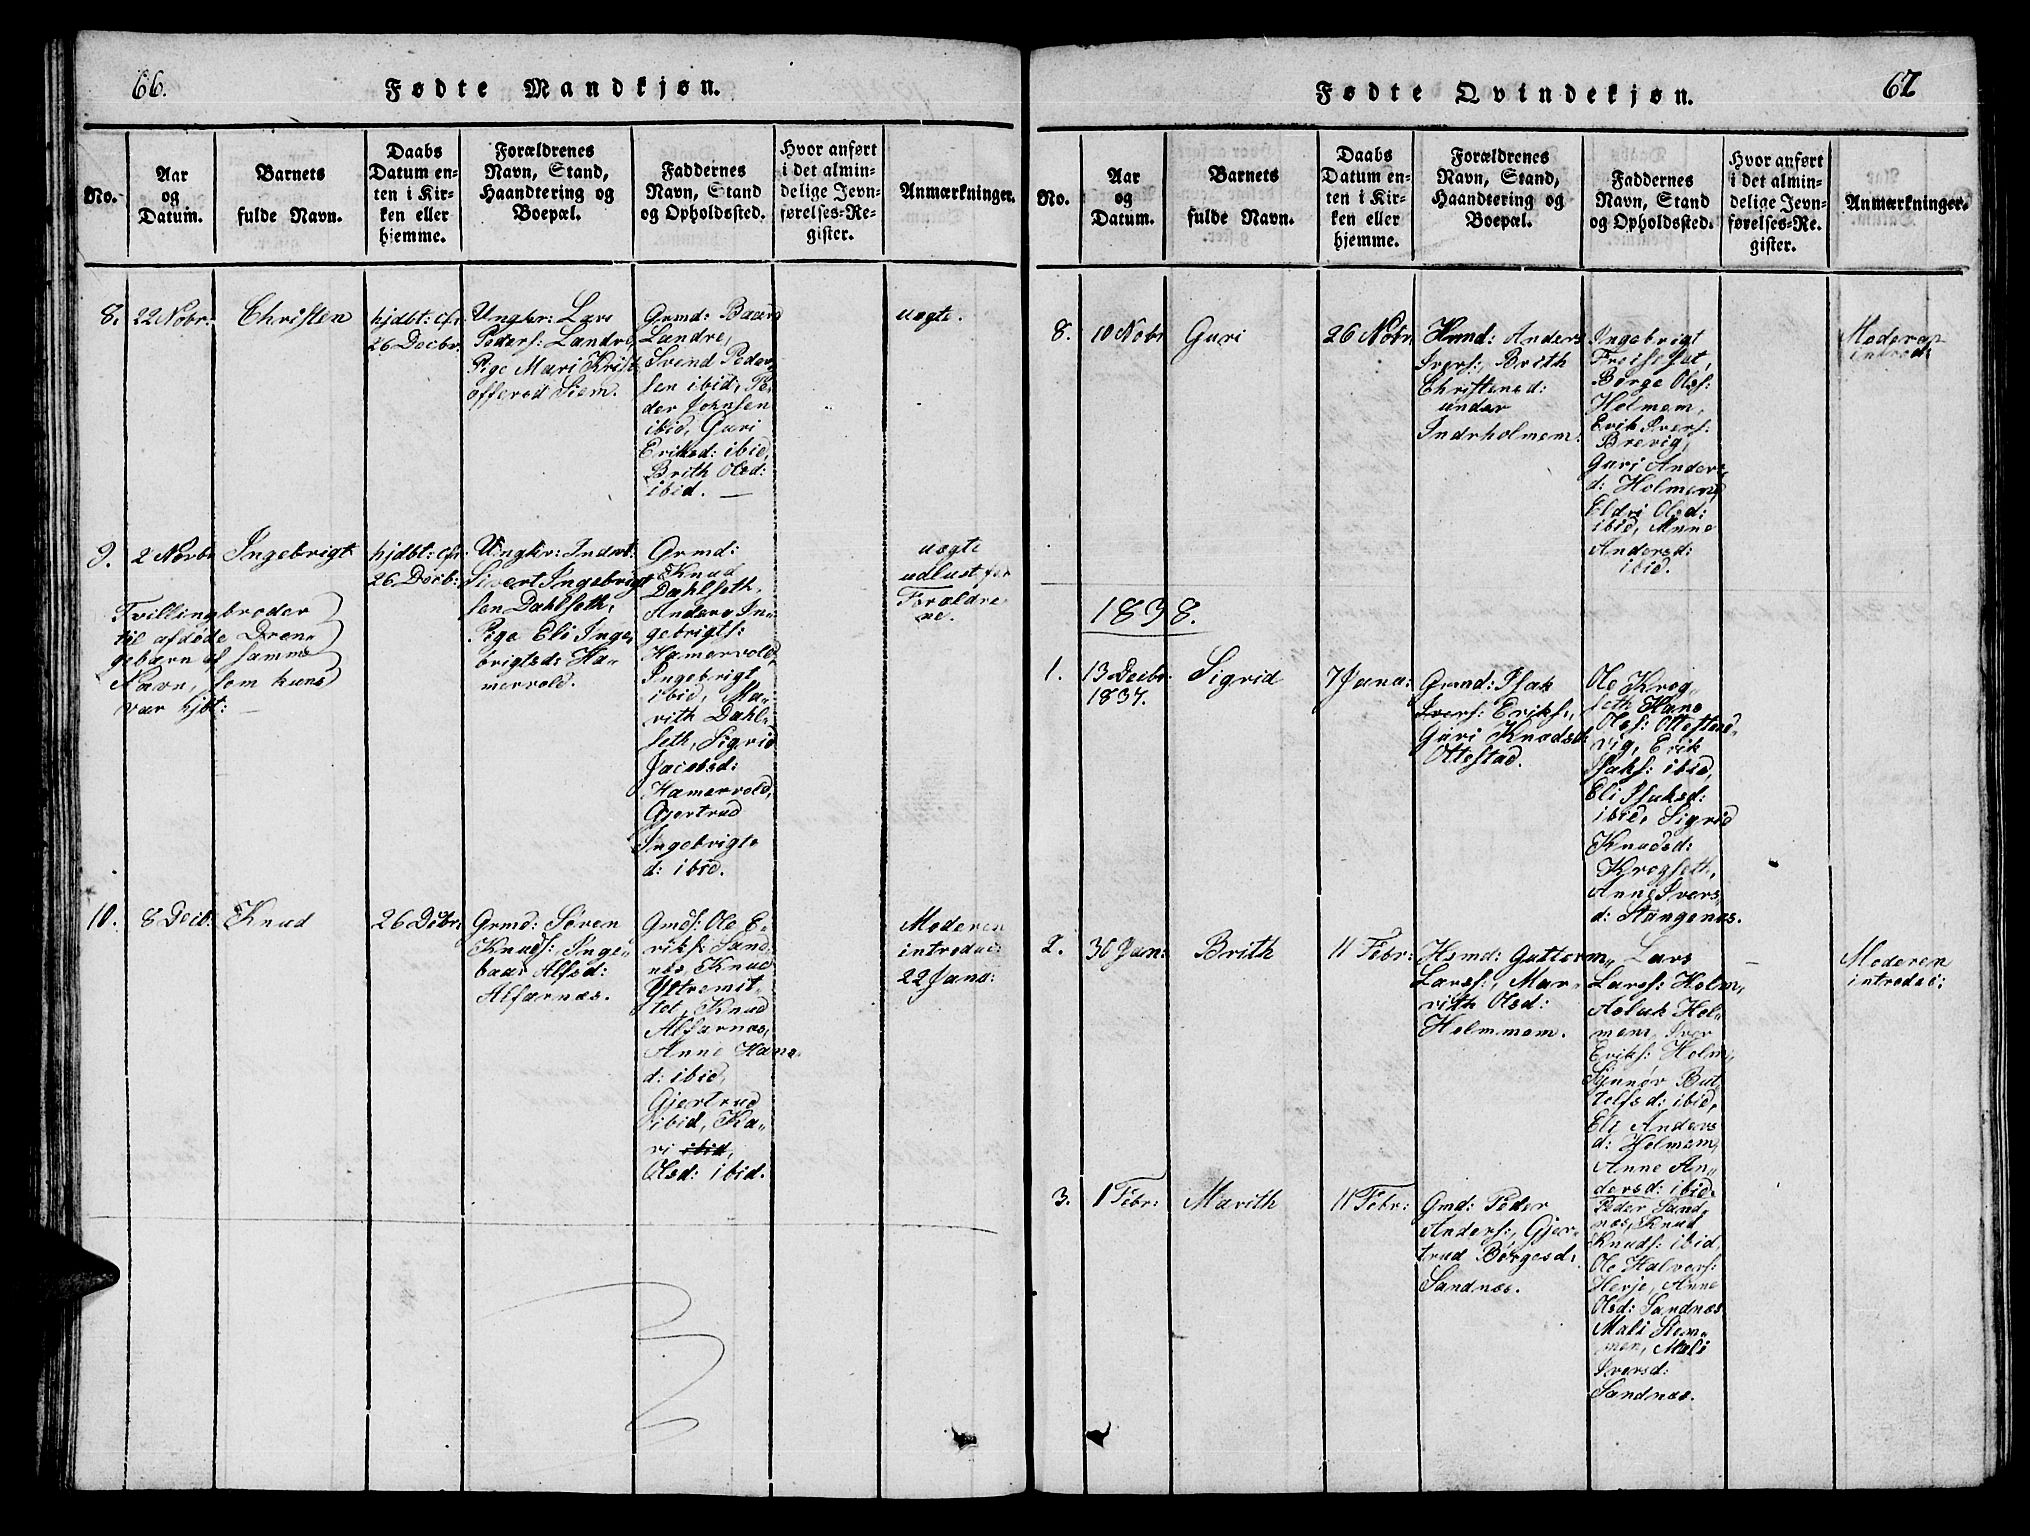 66.
Fødte Mandkjøn.
No.
Aar
og
Datum.
Barnets
fulde Navn.
Daabs
Datum en-
ten i Kir-
ken eller
hjemme.
Forældrenes
Navn, Stand,
Haandtering og
Boepæl.
Faddernes
Navn, Stand
og Opholdssted.
Hvor anført
i det almin-
delige Jevn-
førelses-Re-
gister.
Anmærkninger.
8.
22 Nobr:
Christen
hjdbt: cfr.
26 Decbr.
Ungkr: Lars
Peders: Landre,
Pige Mari Krist
offersd Siem.
Grmd: Baard
Landre,
Svend Peder-
sen ibid, Pe-
der Johnsen
ibid, Guri
Eriksd: ibid,
Brith Olsd:
ibid. —
uægte.
9.
2 Novbr
Ingebrigt
hjdbt: cfr.
26 Decb:
Tvillingbroder
til afdøde Dren-
gebarn af samme
Navn, som kuns
var hjbt: —
Ungkr: Inderst:
Sivert Ingebrigt
sen Dahlseth,
Pige Eli Inge,
brigtsd: Ha-
mervold.
Grmd:
Knud
Dahlseth,
Anders In,,
gebrigts:
Hamervold,
Ingebrigt
ibid, Ma,,
rith Dahl,,
seth, Sigrid
Jacobsd:
Hamervold,
Gjertrud
Ingebrigts
d: ibid.
uægte
udlagt for
Forældre
ne.
10.
8 Decb:
Knud
26 Debr:
Grmd: Søren
Knuds: Inge,,
baar Alfsd:
Alfarnæs.
Gmds: Ole E,,
riks: Sand,,
næs, Knud
Yttremit,,
tet, Knud
Alfarnæs,
Anne Hans,,
d: ibid,
Gjertrud
ibid, Ka,,
ri ibid,
Olsd: ibid.
Moderen
introduc:
22 Jana:
67
Fødte Qvindekjøn.
No.
Aar
og
Datum.
Barnets
fulde Navn.
Daabs
Datum en-
ten i Kir-
ken eller
hjemme.
Forældrenes
Navn, Stand,
Haandtering og
Boepæl.
Faddernes
Navn, Stand
og Opholdssted.
Hvor anført
i det almin-
delige Jevn-
førelses-Re-
gister.
Anmærkninger.
8.
10 Nobr
Guri
26 Nobr
Hmd: Anders
Ivers:, Brith
Christensd:
under
Indrholmem:
Ingebrigt
Børge Ols:
Holmem,
Erik Ivers:
Brevig,
Guri Anders
d: Holmem,
Eldri Olsd:
ibid, Anne
Andersd:
ibid.
Moderen
introd:
1838.
1.
13 Decbr.
1837.
Sigrid
7 Jana:
Grmd: Isak
Ivers: Eriks:,
Guri Knudsd:
Ottestad.
Ole Krog,,
seth, Hans
Ols: Ottestad,,
vig, Erik
Isaks: ibid,
Eli Isaksd:
ibid, Sigrid
Knudsd:
Krogseth,
Anne Ivers
d: Stangenæs.
2.
30 Jan:
Brith
11 Febr:
Hsmd: Guttorm
Larss:, Mar,,
rith Olsd:
Holmmem.
,, Lars
Larss: Holm,
Aslak Hol,,
mem, Iver
Eriks: Holm,
Synnør But,,
tolfsd: ibid,
Eli Anders
d: Holmem,
Anne An,,
dersd: ibid.
—
Moderen
introduc:
3.
1 Febr:
Marith
11 Febr:
Gmd: Peder
Anders:, Gjer,,
trud Børgesd:
Sandnæs.
Peder Sand,,
næs, Knud
Knuds: ibid,
Ole Halvors:
Herje, Anne
Olsd: Sandnæs
Mali Stem,,
men, Mali
Iversd:
Sandnæs.